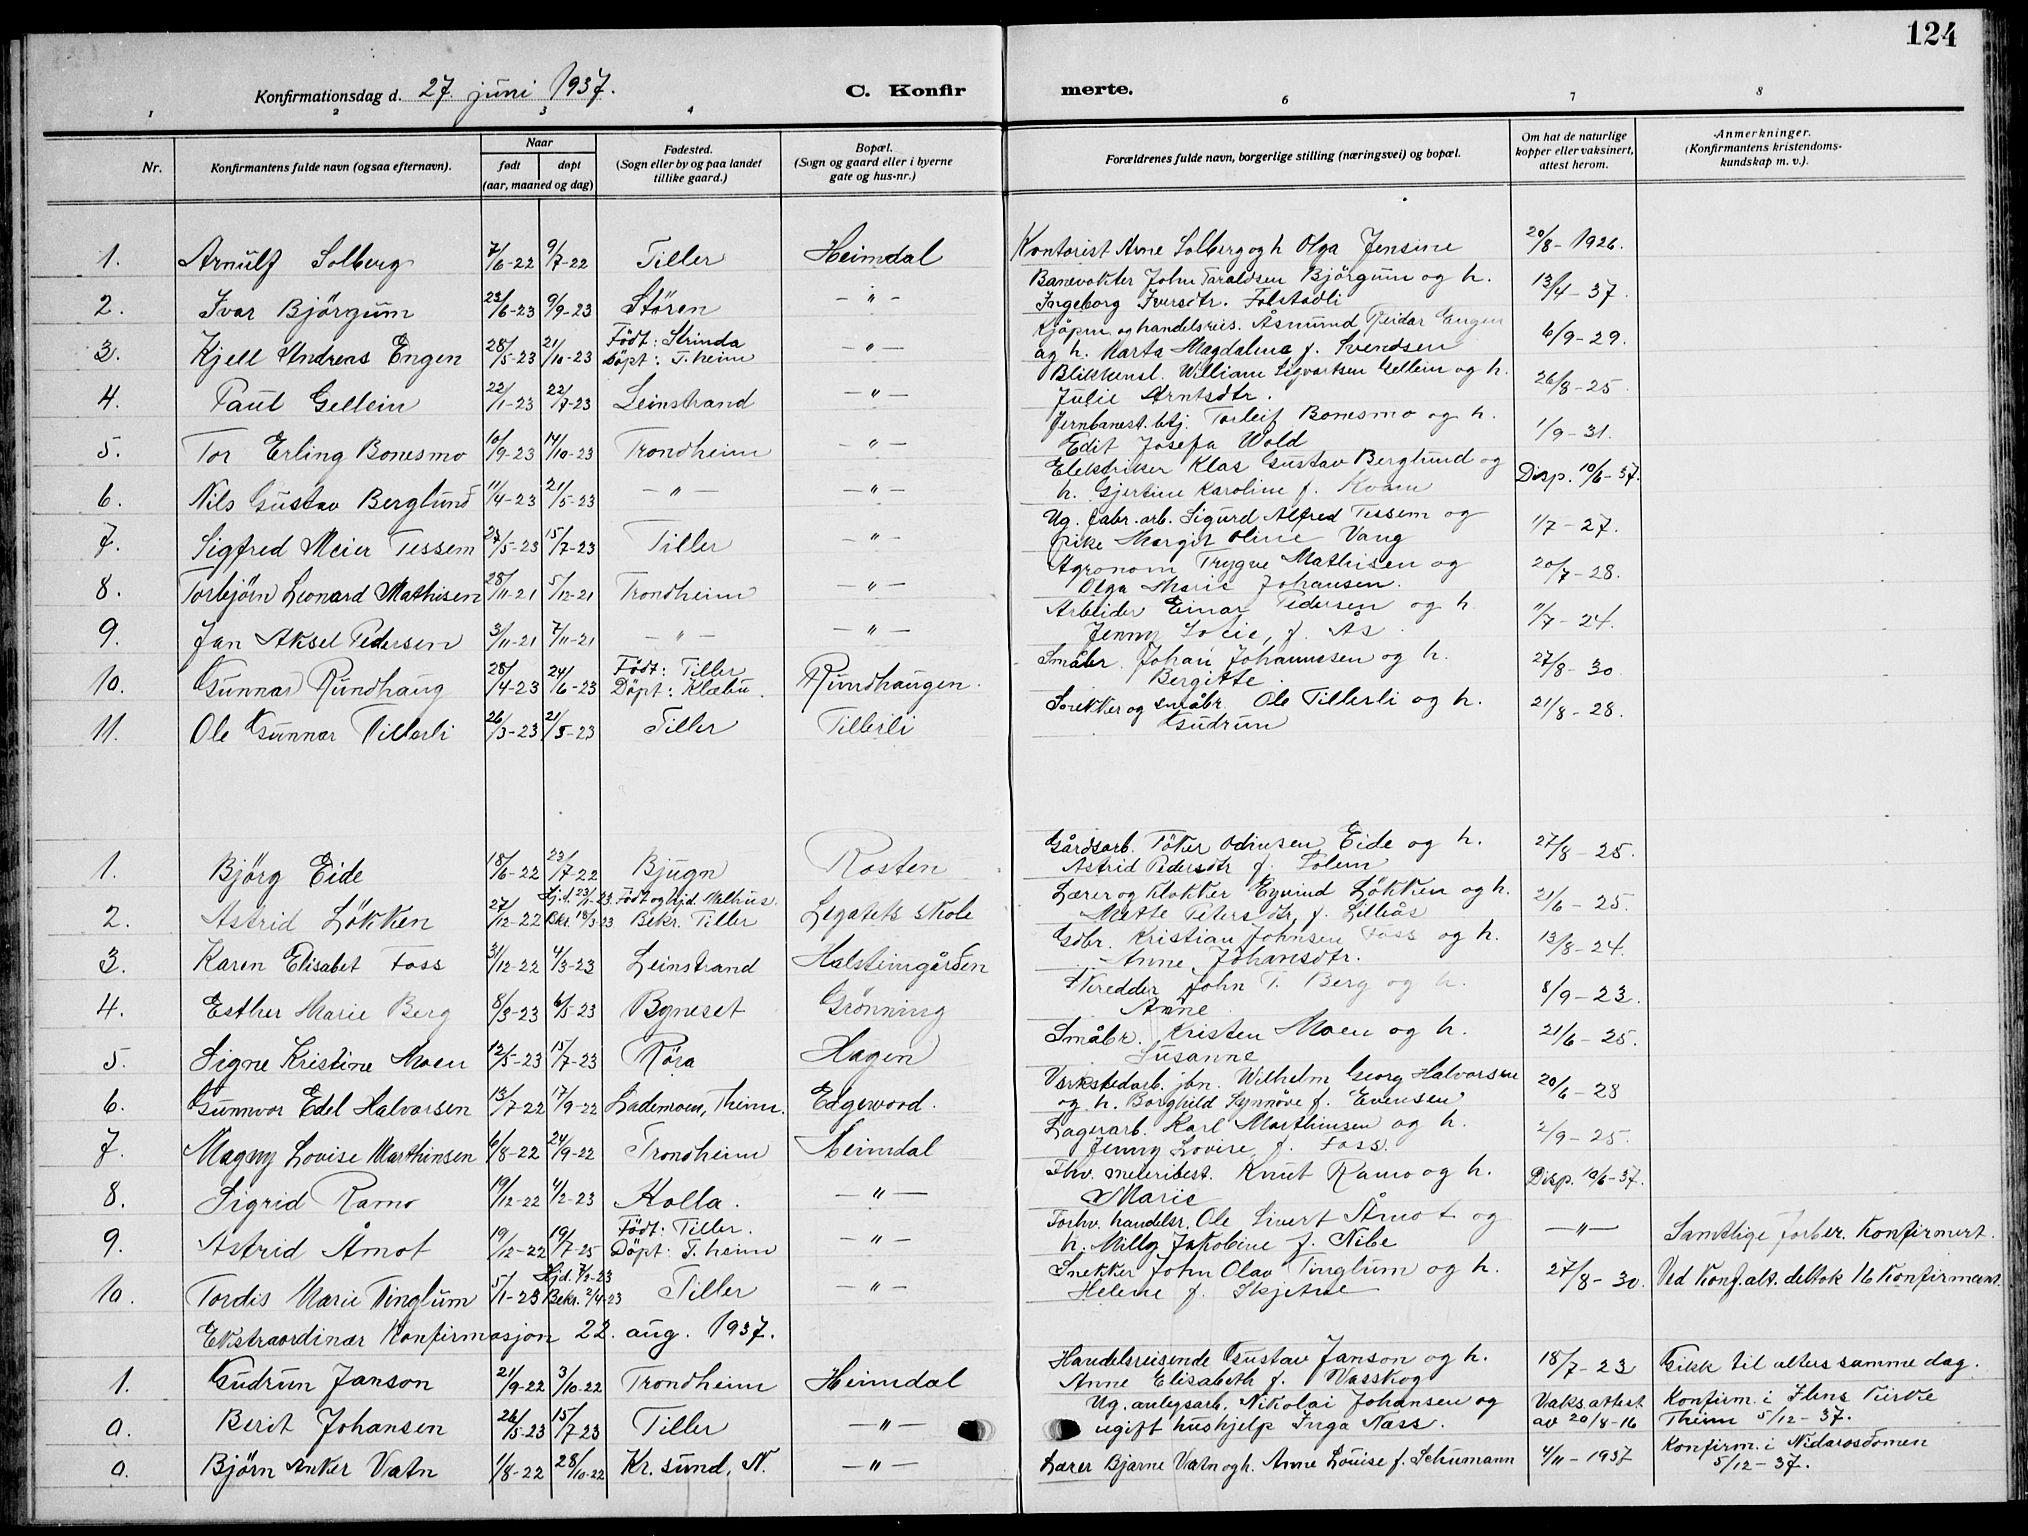 124
Konfirmationsdag d. 27. juni 1937.
C. Konfir merte.
1 2 3 4 6 7 8
Nr.
Konfirmantens fulde navn (ogsaa efternavn).
Naar
født døpt
(aar, maaned og dag)
Fødested.
(Sogn eller by og paa landet
tillike gaard.)
Bopæl.
(Sogn og gaard eller i byerne
gate og hus-nr.)
Forældrenes fulde navn, borgerlige stilling (næringsvei) og bopæl.
Om hat de naturlige
kopper eller vaksinert,
attest herom.
Anmerkninger.
(Konfirmantens kristendoms-
kundskap m. v.).
1. Arnulf Solberg 7/6-22 9/7-22 Tiller Heimdal Kontorist Arne Solberg og h Olga Jensine 20/8-1926.
2. Ivar Björgum 23/6-23 9/9-23 Stören -"- Banevokter John Taraldsen Björgum og h.
Ingeborg Iversdtr. Folstadli 13/4-37.
3. Kjell Andreas Engen 28/5-23 21/10-23 Födt: Strinda
Döpt: T.heim -"- Kjöpm. og handelsreis. Åsmund Reidar Engen
og h. Marta Magdalena f. Svendsen 6/9-29.
4. Paul Gellein 22/11-23 22/7-23 Leinstrand -"- Blikkensl. William Sigvartsen Gellein og h.
Julie Arntsdtr. 26/8-25.
5. Tor Erling Bonesmo 10/9-23 14/10-23 Trondheim -"- Jernbanest.betj. Torleif Bonesmo og h.
Edit Josefa Wold 1/9-31.
6. Nils Gustav Berglund 11/4-23 21/5-23 -"- -"- Elektriker Klas Gustav Berglund og
h. Gjertine Karoline f. Kvam Disp. 10/6-37.
7. Sigfred Meier Tessem 27/5-23 15/7-23 Tiller -"- Ug. fabr.arb. Sigurd Alfred Tessem og
pike Margit Oline Vang 1/7-27.
8. Torbjörn Leonard Mathisen 28/11-21 5/12-21 Trondheim -"- Agronom Trygve Mathisen og
Olga Marie Johansen. 20/7-28.
9. Jan Aksel Pedersen 3/11-21 7/11-21 -"- -"- Arbeider Einar Pedersen og h.
Jenny Sofie, f. As. 11/7-24.
10. Gunnar Rundhaug 28/4-23 24/6-23 Födt: Tiller
Döpt: Klæbu. Rundhaugen. Småbr. Johan Johannssen og h.
Bergitte. 27/8-30
11. Ole Gunnar Tillerli 26/3-23 21/5-23 Tiller Tillerli Snekker og småbr. Ole Tillerli og h.
Gudrun 21/8-28.
1. Björg Eide 18/6-22 23/7-22 Bjugn Rosten Gårdsarb. Töker Odinsen Eide og h.
Astrid Pedersdtr f. Solem 27/8-25.
2. Astrid Lökken 27/12-22 Hj.d. 23/1-23.
Bekr. 18/3-23 Födt og hjd. Melhus.
Bekr. Tiller Legatets skole Lærer og klokker Eyvind Lökken og h.
Mette Petersdtr, f. Lilleås 21/6-25.
3. Karen Elisabet Foss 31/12-22 4/3-23 Leinstrand Halsteingården Gdbr. Kristian Johnsen Foss og h.
Anne Johansdtr. 13/8-24.
4. Esther Marie Berg 8/3-23 6/5-23 Byneset Grönning Skredder John T. Berg og h.
Anne 8/9-23.
5. Signe Kristine Moen 12/5-23 15/7-23 Röra Hagen Småbr. Kristen Moen og h.
Susanne 21/6-25.
6. Gunnvor Edel Halvorsen 13/7-22 17/9-22 Lademoen, Theim. Edgewood. Verkstedarb. jbn. Wilhelm Georg Halvorsen
og h. Borghild Synnöve f. Evensen 20/6-28
7. Magny Lovise Marthinsen 6/8-22 24/9-22 Trondheim Heimdal Lagerarb. Karl Marthinsen og h.
Jenny Lovise, f. Foss. 2/9-25.
8. Sigrid Ramo 19/12-22 4/2-23 Kolla. -"- Fhv. meieribest. Knut Ramo og h.
Marie Disp. 10/6-37.
9. Astrid Åmot 19/12-22 19/7-25 Födt: Tiller.
Döpt: T.heim -"- Forhv. handelsr. Ole Sivert Åmot og
h. Milly Jakobine f. Nibe -"- Samtlige forber. konfirmert.
10. Tordis Marie Tinglum 5/1-23 Hjd. 7/2-23
Bekr. 2/4-23 Tiller -"- Snekker John Olav Tinglum og h.
Helene f. Skjetne 27/8-30. Ved Konf.alt. deltok 16 konfirmant.
Ekstraordinær konfirmasjon 22. aug. 1937.
1. Gudrun Janson 21/9-22 3/10-22 Trondheim Heimdal Handelsreisende Gustav Janson og h.
Anne Elisabeth f. Vasskog 18/7-23 Gikk til alters samme dag.
0. Berit Johansen 26/5-23 15/7-23 Tiller -"- Ug. anlegsarb. Nikolai Johansen og
ugift hushjelp Inga Næss. Vaks.attest
av 20/8-16 Konfirm. i Ilens kirke
Theim 5/12-37.
0. Björn Anker Vatn 1/8-22 28/10-22 Kr.sund, N. -"- Lærer Bjarne Vatn og h. Anne Louise f. Schumann 4/11-1937 Konfirm. i Nidarosdomen
5/12-37.